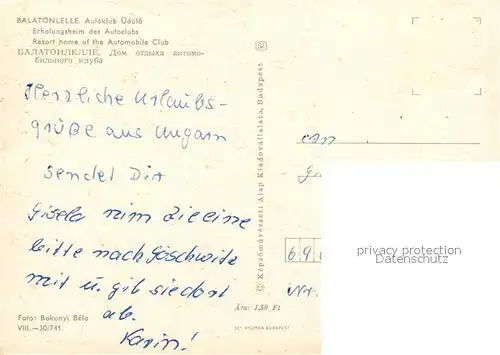 BALATONLELLE. Autóklub Üdülő
Erholungsheim des Autoclubs
Resort home of the Automobile Club
БАЛАТОНЛЕЛЛЕ. Дом отдыха автомо-
бильного клуба
Herzliche Urlaubs-
grüße aus Ungarn
sendet Dir
Gisela nim die eine
bitte nach Göschwitz
mit u. gib sie dort
ab.
Karin!
Foto: Bakonyi Béla
VIII.—30/741.
© Képzőművészeti Alap Kiadóvállalata, Budapest
Ára: 1,50 Ft
An
6 9
privacy protection
Datenschutz